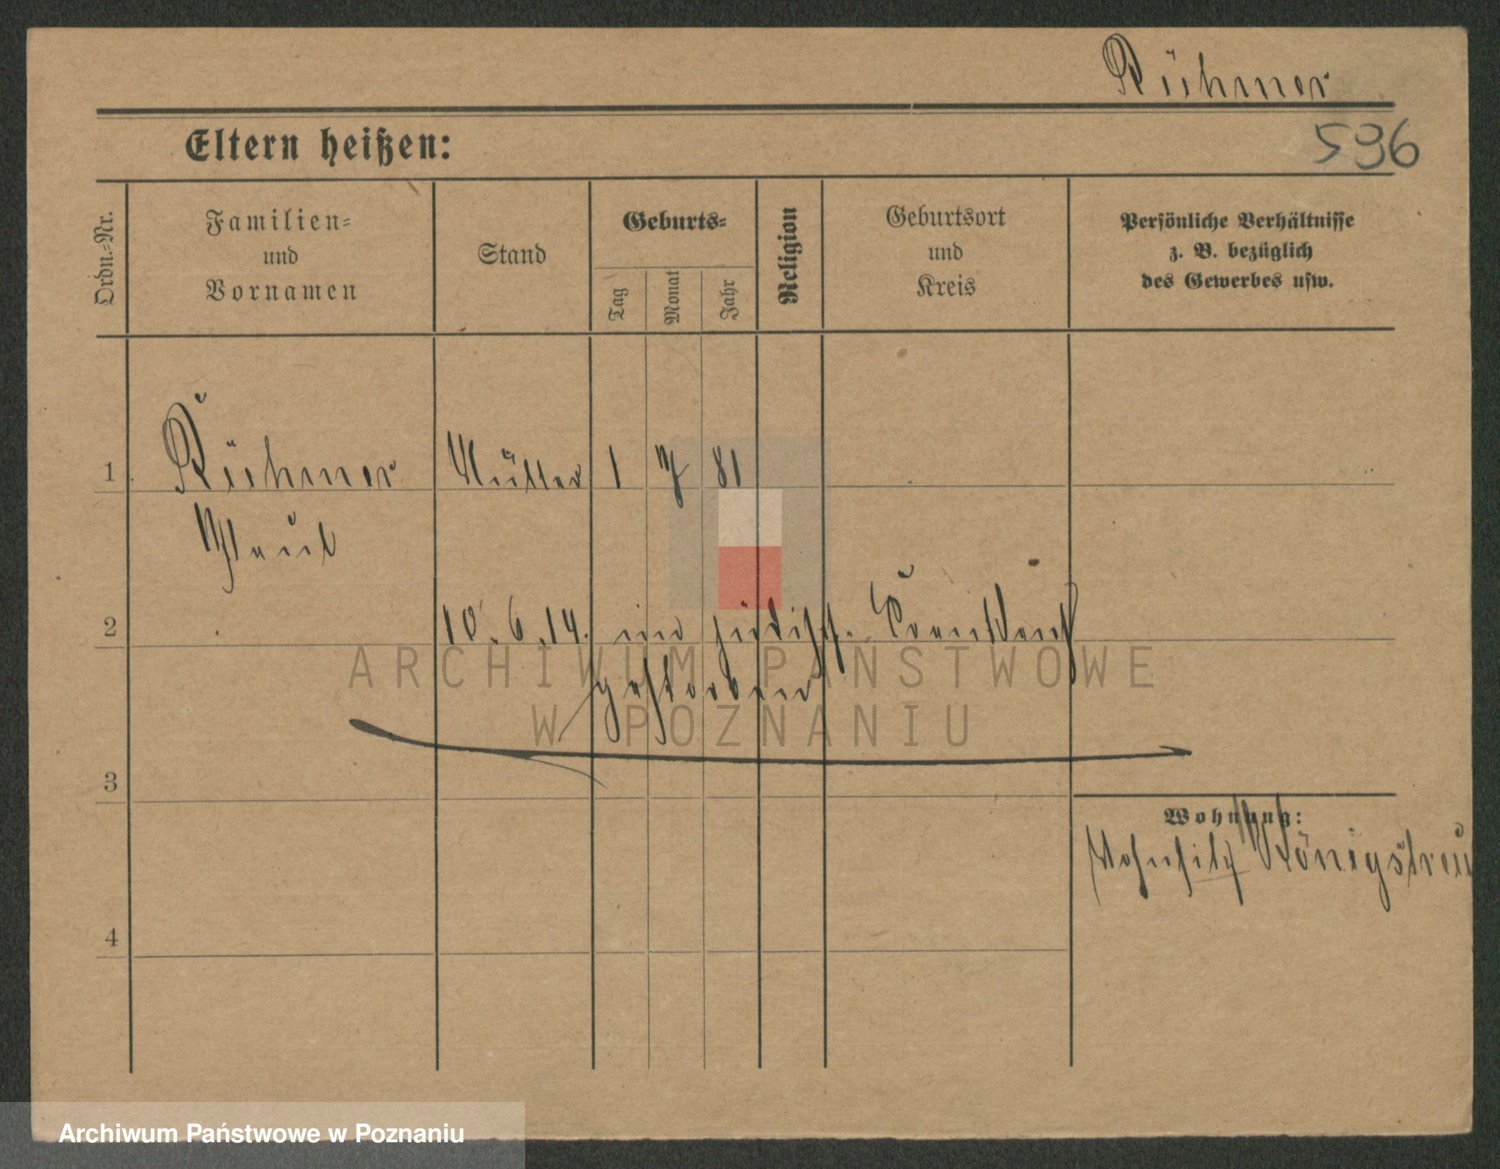 Rühmer
596
Eltern heißen:
Ordn.-Nr.
Familien-
und
Vornamen
Stand
Geburts-
Tag
Monat
Jahr
Religion
Geburtsort
und
Kreis
Persönliche Verhältnisse
z. B. bezüglich
des Gewerbes usw.
1
Rühmer Müller 1 7 81
Paul
2
10.6.14. im jüdisch.
gestorben
ARCHIWUM PAŃSTWOWE
W POZNANIU
3
Wohnung:
Wohnsitz Königstreu
4
Archiwum Państwowe w Poznaniu